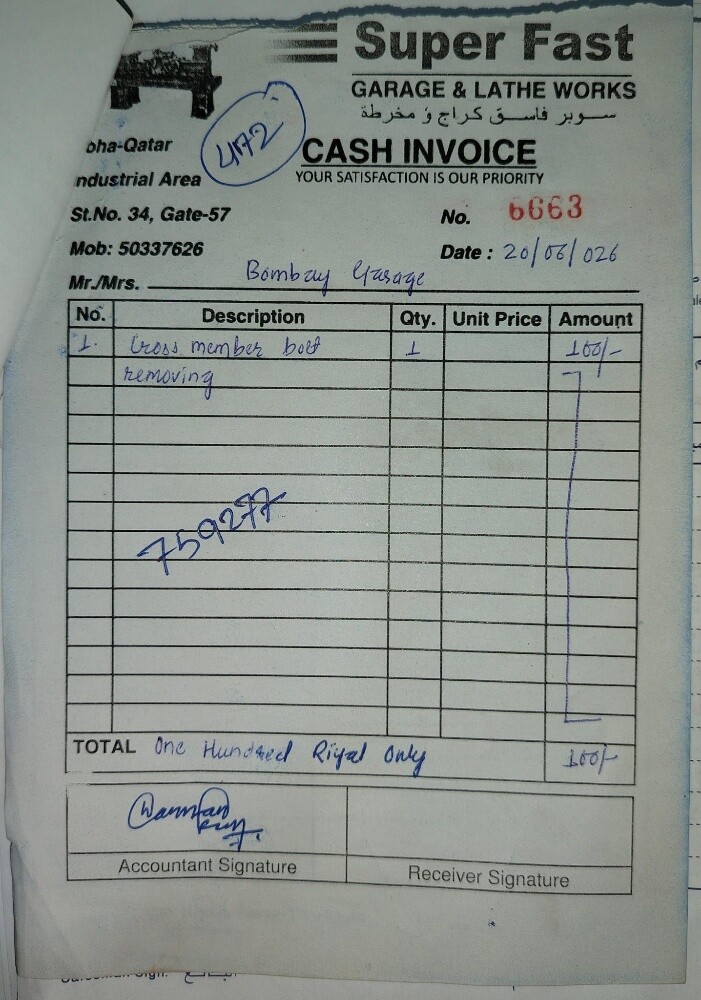 Super Fast
GARAGE & LATHE WORKS
سوبر فاست كراج و مخرطة
oha-Qatar
4172
CASH INVOICE
ndustrial Area
YOUR SATISFACTION IS OUR PRIORITY
St.No. 34, Gate-57
No. 6663
Mob: 50337626
Date : 20/06/026
Mr./Mrs. Bombay Garage
No. Description Qty. Unit Price Amount
1. Cross member bolt 1 100/-
removing
759277
TOTAL One Hundred Riyal Only 100/-
Accountant Signature
Receiver Signature